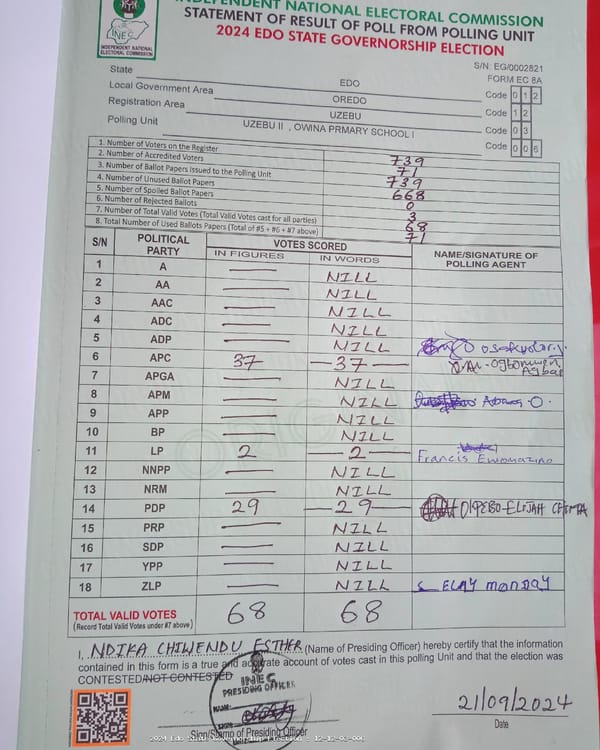 INDEPENDENT NATIONAL ELECTORAL COMMISSION
INEC
INDEPENDENT NATIONAL
ELECTORAL COMMISSION
STATEMENT OF RESULT OF POLL FROM POLLING UNIT
2024 EDO STATE GOVERNORSHIP ELECTION
S/N: EG/0002821
FORM EC 8A
State EDO Code 0 1 2
Local Government Area OREDO Code 1 2
Registration Area UZEBU Code 0 3
Polling Unit UZEBU II , OWINA PRMARY SCHOOL I Code 0 0 6
1. Number of Voters on the Register 739
2. Number of Accredited Voters 71
3. Number of Ballot Papers Issued to the Polling Unit 739
4. Number of Unused Ballot Papers 668
5. Number of Spoiled Ballot Papers 0
6. Number of Rejected Ballots 3
7. Number of Total Valid Votes (Total Valid Votes cast for all parties) 68
8. Total Number of Used Ballots Papers (Total of #5 + #6 + #7 above) 71
S/N POLITICAL PARTY VOTES SCORED NAME/SIGNATURE OF POLLING AGENT
IN FIGURES IN WORDS
1 A — NILL
2 AA — NILL
3 AAC — NILL
4 ADC — NILL
5 ADP — NILL
6 APC 37 —37—
7 APGA — NILL
8 APM — NILL
9 APP — NILL
10 BP — NILL
11 LP 2 —2— Francis
12 NNPP — NILL
13 NRM — NILL
14 PDP 29 —29— ELIJAH
15 PRP — NILL
16 SDP — NILL
17 YPP — NILL
18 ZLP — NILL monday
TOTAL VALID VOTES 68 68
(Record Total Valid Votes under #7 above)
I, NDIKA CHIWENDU ESTHER (Name of Presiding Officer) hereby certify that the information
contained in this form is a true and accurate account of votes cast in this polling Unit and that the election was
CONTESTED/NOT CONTESTED
INEC
PRESIDING OFFICER
21/09/2024
Sign/Stamp of Presiding Officer
Date